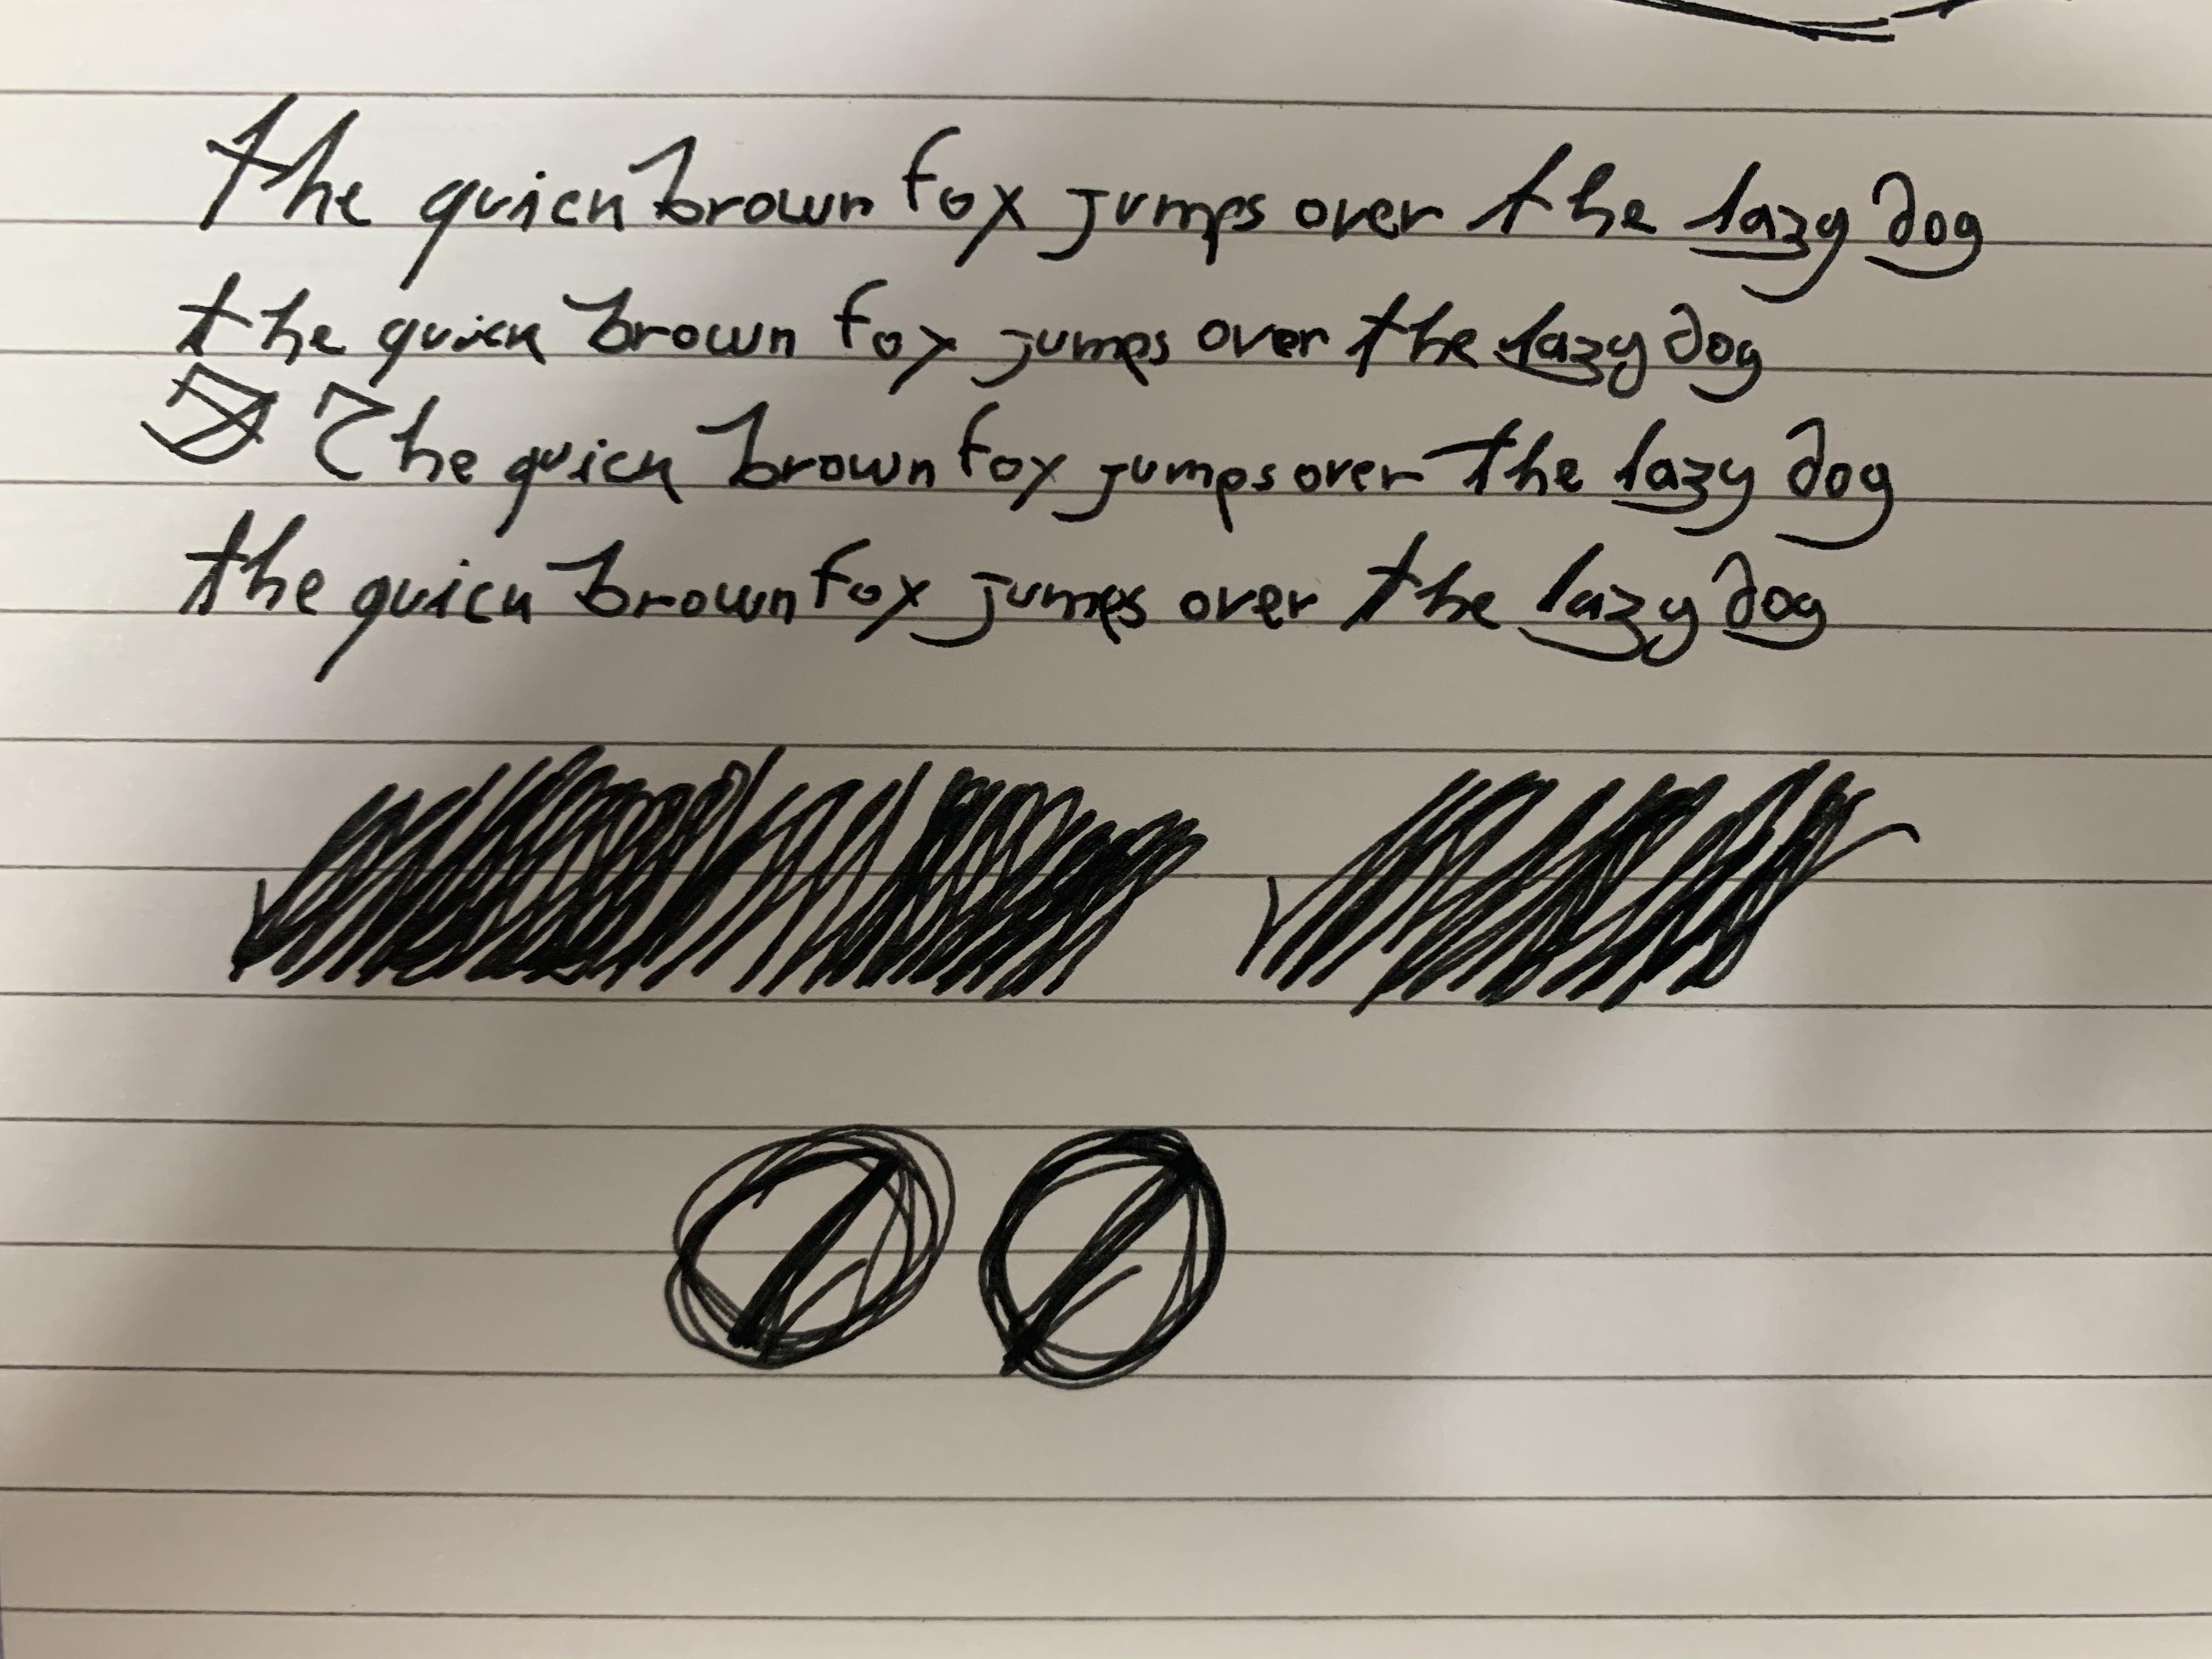 the quick brown fox jumps over the lazy dog
the quick brown fox jumps over the lazy dog
The quick brown fox jumps over the lazy dog
the quick brown fox jumps over the lazy dog